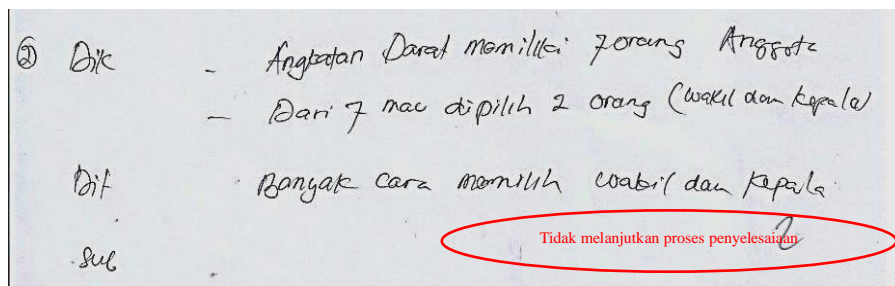 ② Dik - Angkatan Darat memiliki 7 orang Anggota
- Dari 7 mau dipilih 2 orang (wakil dan kepala)
Dit Banyak cara memilih wakil dan kepala
Tidak melanjutkan proses penyelesaiaan